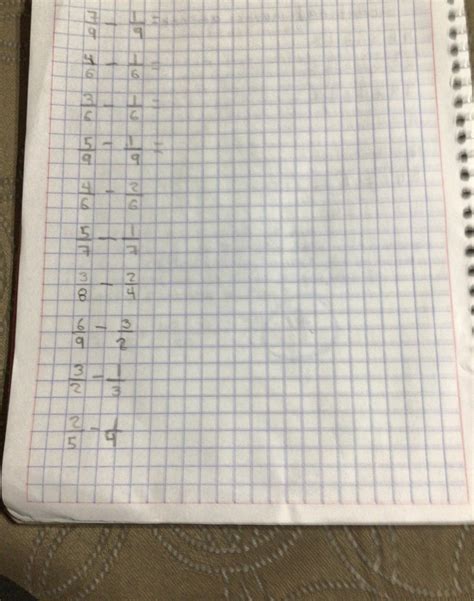 7/9 - 1/9 =
4/6 - 1/6 =
3/6 - 1/6 =
5/9 - 1/9 =
4/6 - 2/6
5/7 - 1/7
3/8 - 2/4
6/9 - 3/2
3/2 - 1/3
2/5 - 1/4